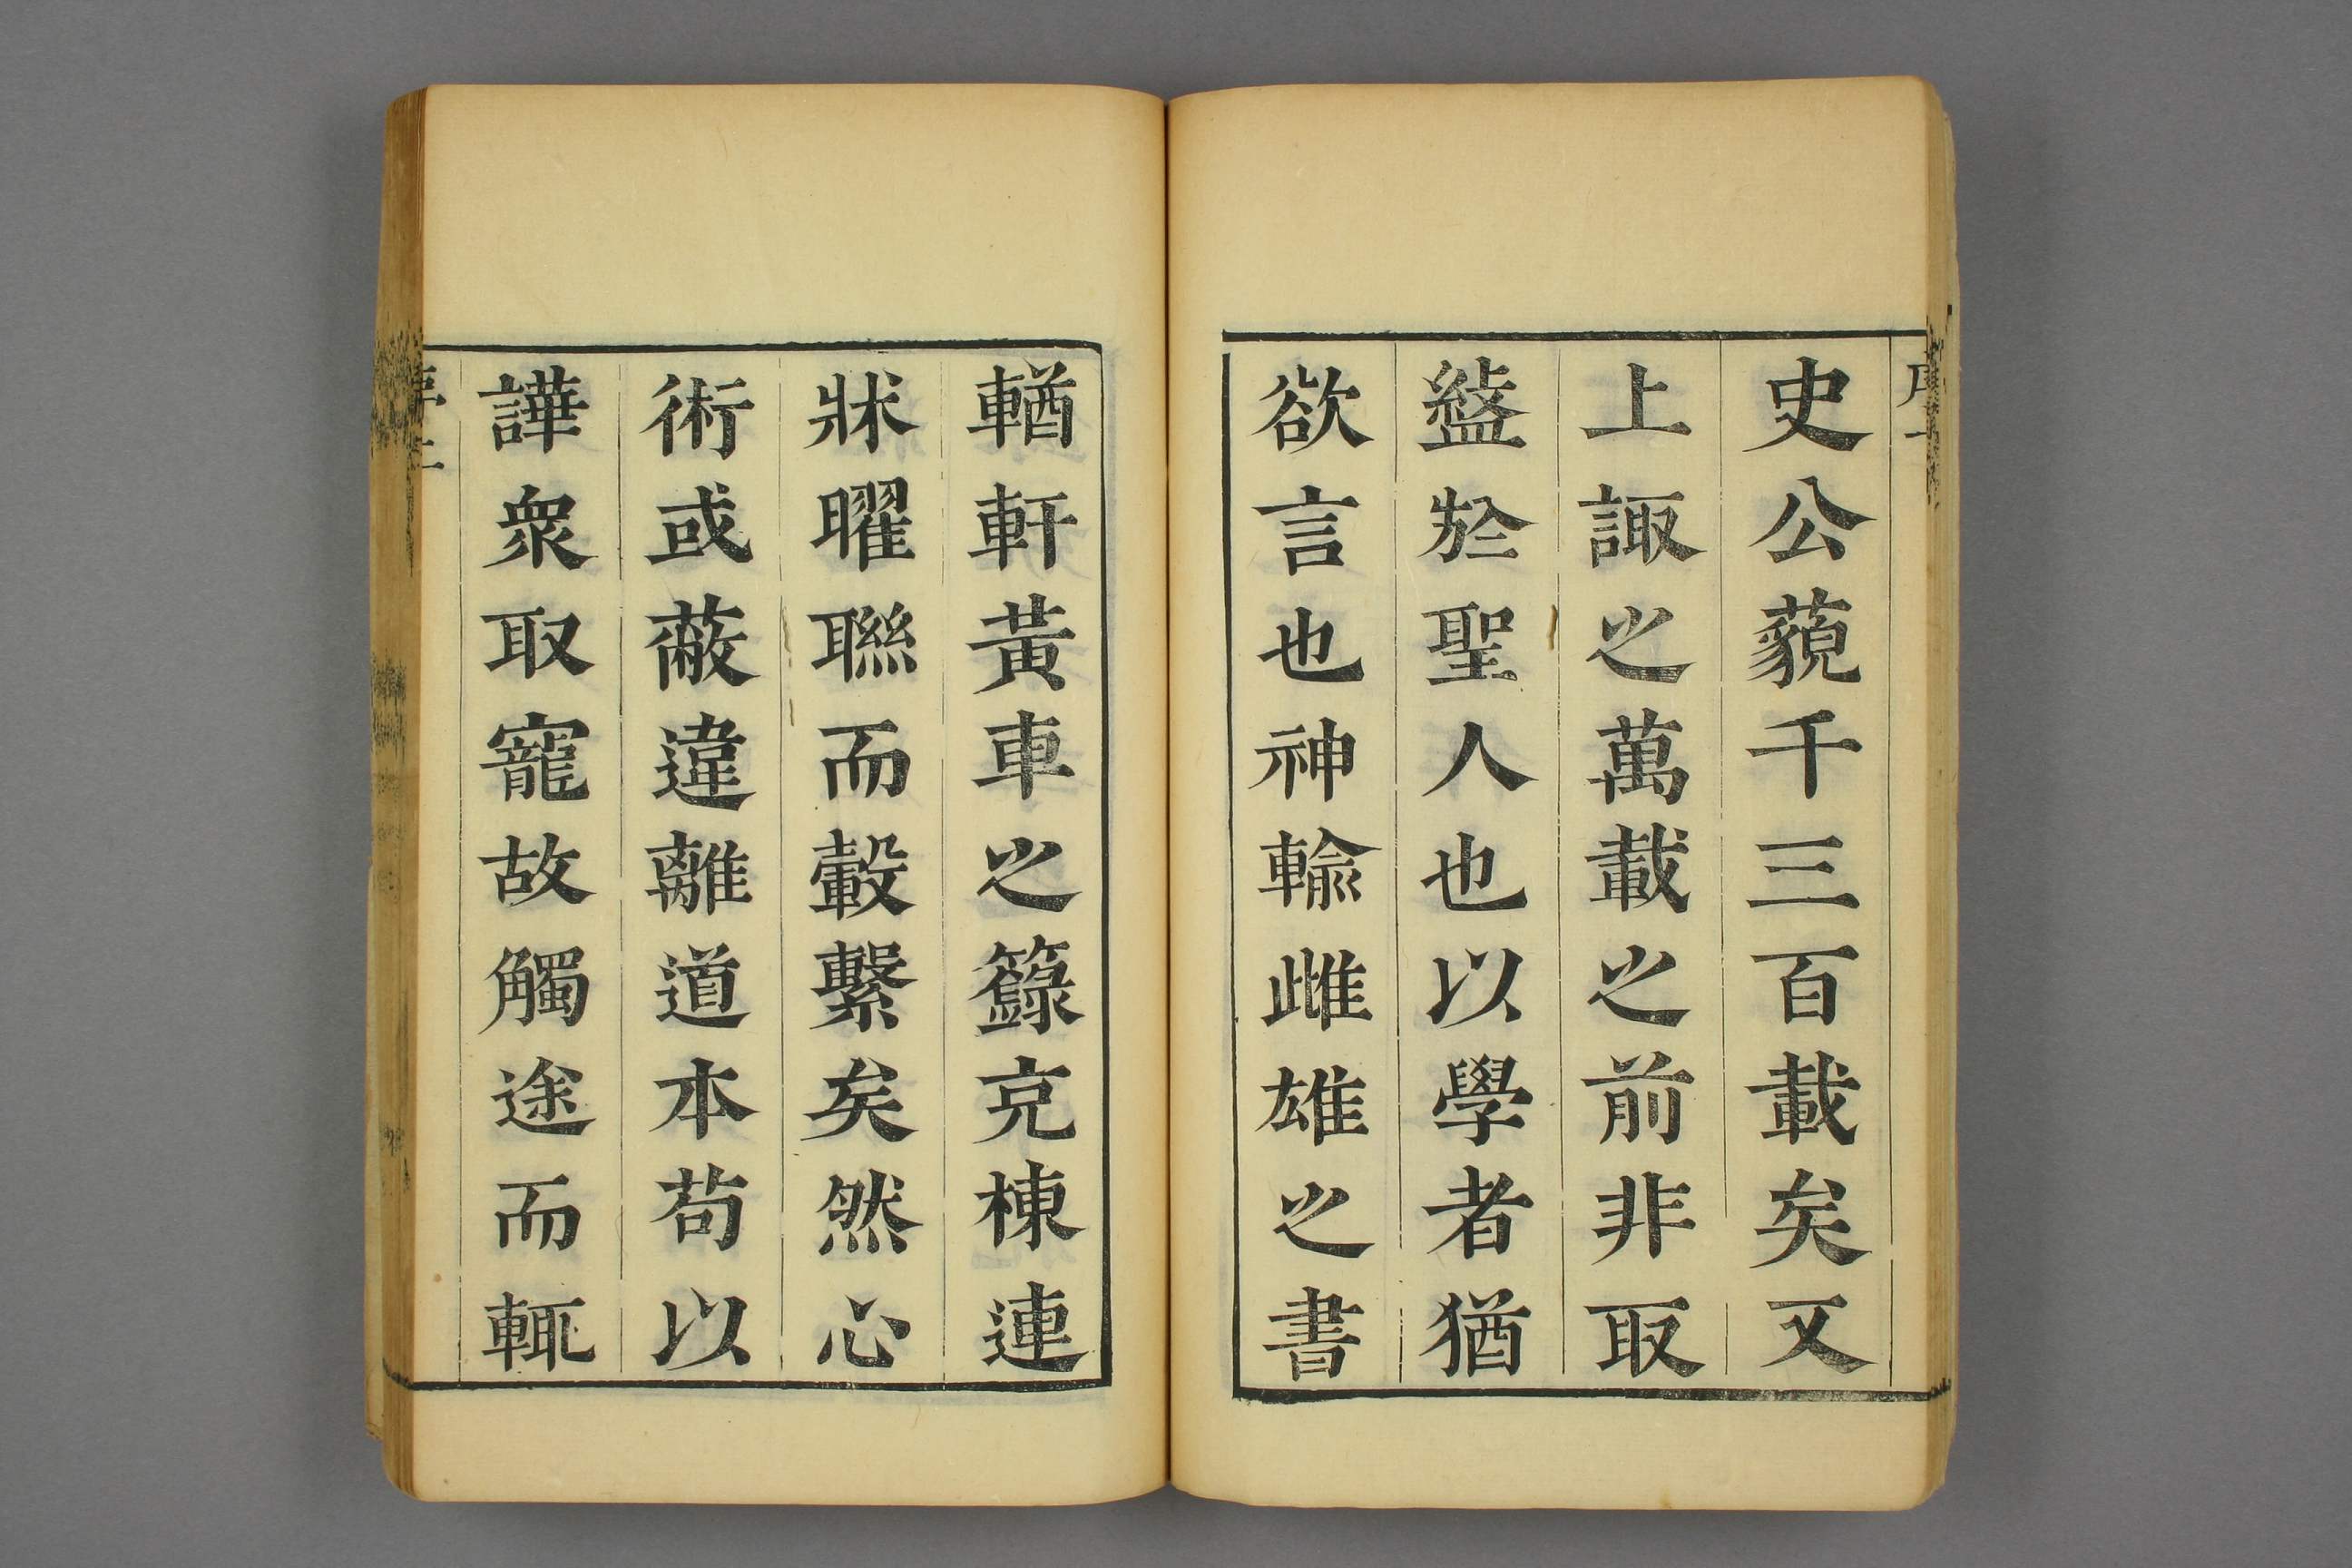 史公藐千三百載矣又
上諏之萬載之前非取
盭於聖人也以學者猶
欲言也神輸雌雄之書
輶軒黃車之籙充棟連
牀曜聯而轂繫矣然心
術或蔽違離道本苟以
譁衆取寵故觸途而輒